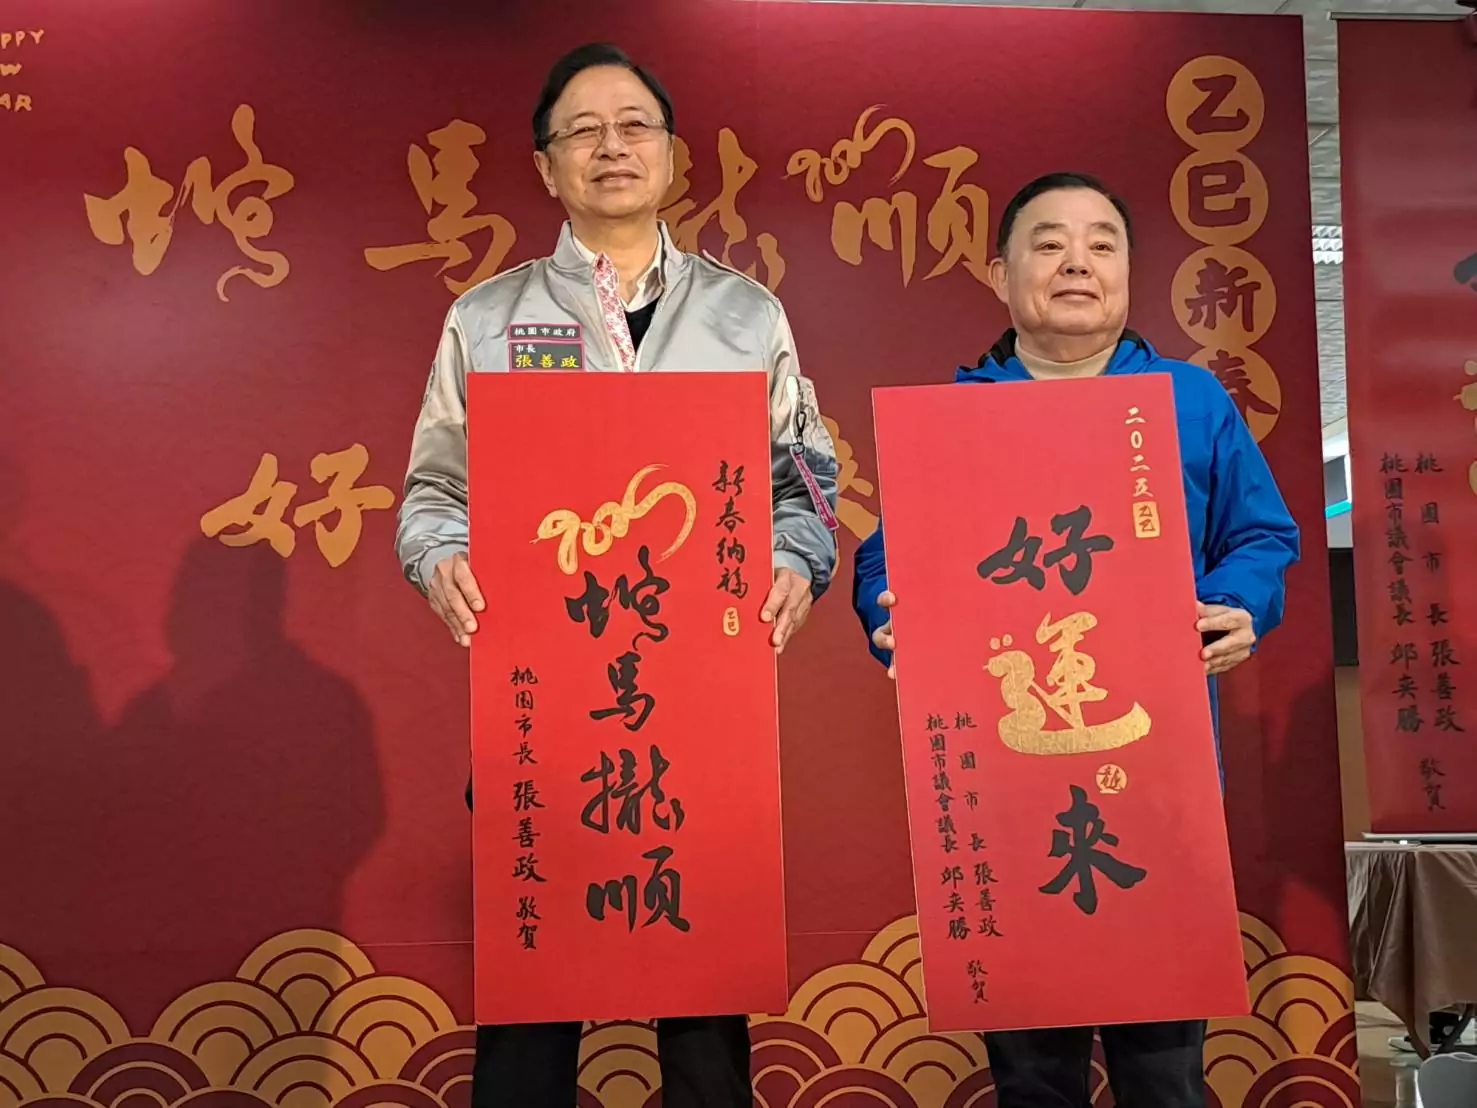 PPY
W
AR
蛇 馬 龍 2025 順
乙巳新春
好 來
桃園市政府
市長
張善政
新春納福
乙巳
2025
蛇馬攏順
桃園市長 張善政 敬賀
二〇二五
乙巳
好運來
桃園市長 張善政 敬賀
桃園市議會議長 邱奕勝
桃園市長 張善政 敬賀
桃園市議會議長 邱奕勝